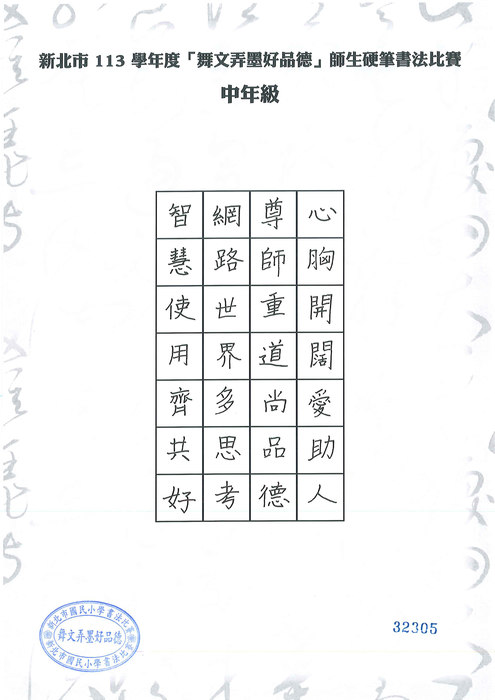 新北市 113 學年度「舞文弄墨好品德」師生硬筆書法比賽
中年級
心胸開闊愛助人
尊師重道尚品德
網路世界多思考
智慧使用齊共好
新北市國民小學書法比賽
舞文弄墨好品德
新北市國民小學書法比賽
32305